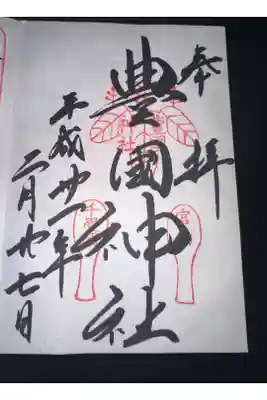 奉拝
豊國神社
平成廿一年
二月廿七日